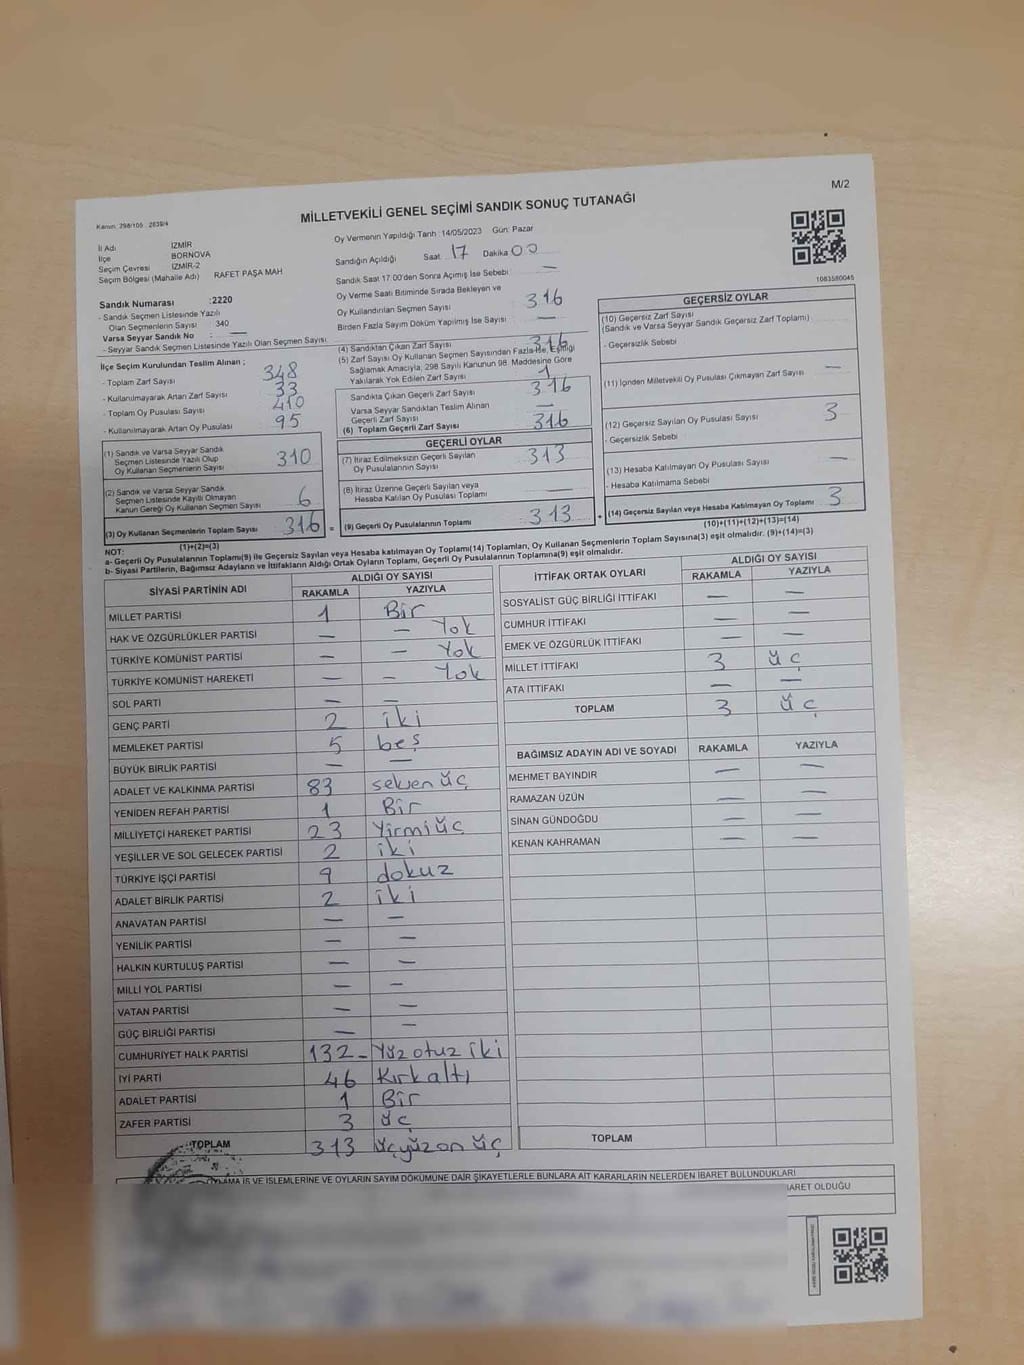 M/2
Kanun: 298/105 2839/4
MİLLETVEKİLİ GENEL SEÇİMİ SANDIK SONUÇ TUTANAĞI
İl Adı İZMİR
İlçe BORNOVA
Seçim Çevresi İZMİR-2
Seçim Bölgesi (Mahalle Adı) RAFET PAŞA MAH
Sandık Numarası :2220
- Sandık Seçmen Listesinde Yazılı
Olan Seçmenlerin Sayısı 340
Varsa Seyyar Sandık No : —
- Seyyar Sandık Seçmen Listesinde Yazılı Olan Seçmen Sayısı
İlçe Seçim Kurulundan Teslim Alınan ;
- Toplam Zarf Sayısı 348
- Kullanılmayarak Artan Zarf Sayısı 33
- Toplam Oy Pusulası Sayısı 410
- Kullanılmayarak Artan Oy Pusulası 95
(1) Sandık ve Varsa Seyyar Sandık
Seçmen Listesinde Yazılı Olup
Oy Kullanan Seçmenlerin Sayısı 310
(2) Sandık ve Varsa Seyyar Sandık
Seçmen Listesinde Kayıtlı Olmayan
Kanun Gereği Oy Kullanan Seçmen Sayısı 6
(3) Oy Kullanan Seçmenlerin Toplam Sayısı 316 =
(1)+(2)=(3)
Oy Vermenin Yapıldığı Tarih :14/05/2023 Gün: Pazar
Sandığın Açıldığı Saat 17 Dakika 00
Sandık Saat 17.00'den Sonra Açımış İse Sebebi —
Oy Verme Saati Bitiminde Sırada Bekleyen ve
Oy Kullandırılan Seçmen Sayısı 316
Birden Fazla Sayım Döküm Yapılmış İse Sayısı —
(4) Sandıktan Çıkan Zarf Sayısı 316
(5) Zarf Sayısı Oy Kullanan Seçmen Sayısından Fazla İse, Eşitliği
Sağlamak Amacıyla, 298 Sayılı Kanunun 98. Maddesine Göre
Yakılarak Yok Edilen Zarf Sayısı
Sandıkta Çıkan Geçerli Zarf Sayısı 316
Varsa Seyyar Sandıktan Teslim Alınan
Geçerli Zarf Sayısı —
(6) Toplam Geçerli Zarf Sayısı 316
GEÇERLİ OYLAR
(7) İtiraz Edilmeksizin Geçerli Sayılan
Oy Pusulalarının Sayısı 313
(8) İtiraz Üzerine Geçerli Sayılan veya
Hesaba Katılan Oy Pusulası Toplamı —
(9) Geçerli Oy Pusulalarının Toplamı 313 +
1083580045
GEÇERSİZ OYLAR
(10) Geçersiz Zarf Sayısı
(Sandık ve Varsa Seyyar Sandık Geçersiz Zarf Toplamı)
- Geçersizlik Sebebi
(11) İçinden Milletvekili Oy Pusulası Çıkmayan Zarf Sayısı —
(12) Geçersiz Sayılan Oy Pusulası Sayısı 3
- Geçersizlik Sebebi
(13) Hesaba Katılmayan Oy Pusulası Sayısı —
- Hesaba Katılmama Sebebi
(14) Geçersiz Sayılan veya Hesaba Katılmayan Oy Toplamı 3
(10)+(11)+(12)+(13)=(14)
NOT:
a- Geçerli Oy Pusulalarının Toplamı(9) ile Geçersiz Sayılan veya Hesaba katılmayan Oy Toplamı(14) Toplamları, Oy Kullanan Seçmenlerin Toplam Sayısına(3) eşit olmalıdır. (9)+(14)=(3)
b- Siyasi Partilerin, Bağımsız Adayların ve İttifakların Aldığı Ortak Oyların Toplamı, Geçerli Oy Pusulalarının Toplamına(9) eşit olmalıdır.
SİYASİ PARTİNİN ADI ALDIĞI OY SAYISI
RAKAMLA YAZIYLA
MİLLET PARTİSİ 1 Bir
HAK VE ÖZGÜRLÜKLER PARTİSİ — — Yok
TÜRKİYE KOMÜNİST PARTİSİ — — Yok
TÜRKİYE KOMÜNİST HAREKETİ — — Yok
SOL PARTİ — —
GENÇ PARTİ 2 iki
MEMLEKET PARTİSİ 5 beş
BÜYÜK BİRLİK PARTİSİ — —
ADALET VE KALKINMA PARTİSİ 83 seksen üç
YENİDEN REFAH PARTİSİ 1 Bir
MİLLİYETÇİ HAREKET PARTİSİ 23 Yirmi üç
YEŞİLLER VE SOL GELECEK PARTİSİ 2 iki
TÜRKİYE İŞÇİ PARTİSİ 9 dokuz
ADALET BİRLİK PARTİSİ 2 iki
ANAVATAN PARTİSİ — —
YENİLİK PARTİSİ — —
HALKIN KURTULUŞ PARTİSİ — —
MİLLİ YOL PARTİSİ — —
VATAN PARTİSİ — —
GÜÇ BİRLİĞİ PARTİSİ — —
CUMHURİYET HALK PARTİSİ 132 - Yüz otuz iki
İYİ PARTİ 46 Kırk altı
ADALET PARTİSİ 1 Bir
ZAFER PARTİSİ 3 üç
TOPLAM 313 üçyüz on üç
İTTİFAK ORTAK OYLARI ALDIĞI OY SAYISI
RAKAMLA YAZIYLA
SOSYALİST GÜÇ BİRLİĞİ İTTİFAKI — —
CUMHUR İTTİFAKI — —
EMEK VE ÖZGÜRLÜK İTTİFAKI — —
MİLLET İTTİFAKI 3 üç
ATA İTTİFAKI — —
TOPLAM 3 üç
BAĞIMSIZ ADAYIN ADI VE SOYADI RAKAMLA YAZIYLA
MEHMET BAYINDIR — —
RAMAZAN ÜZÜN — —
SİNAN GÜNDOĞDU — —
KENAN KAHRAMAN — —
TOPLAM
OYLAMA İŞ VE İŞLEMLERİNE VE OYLARIN SAYIM DÖKÜMÜNE DAİR ŞİKAYETLERLE BUNLARA AİT KARARLARIN NELERDEN İBARET BULUNDUKLARI
BARET OLDUĞU